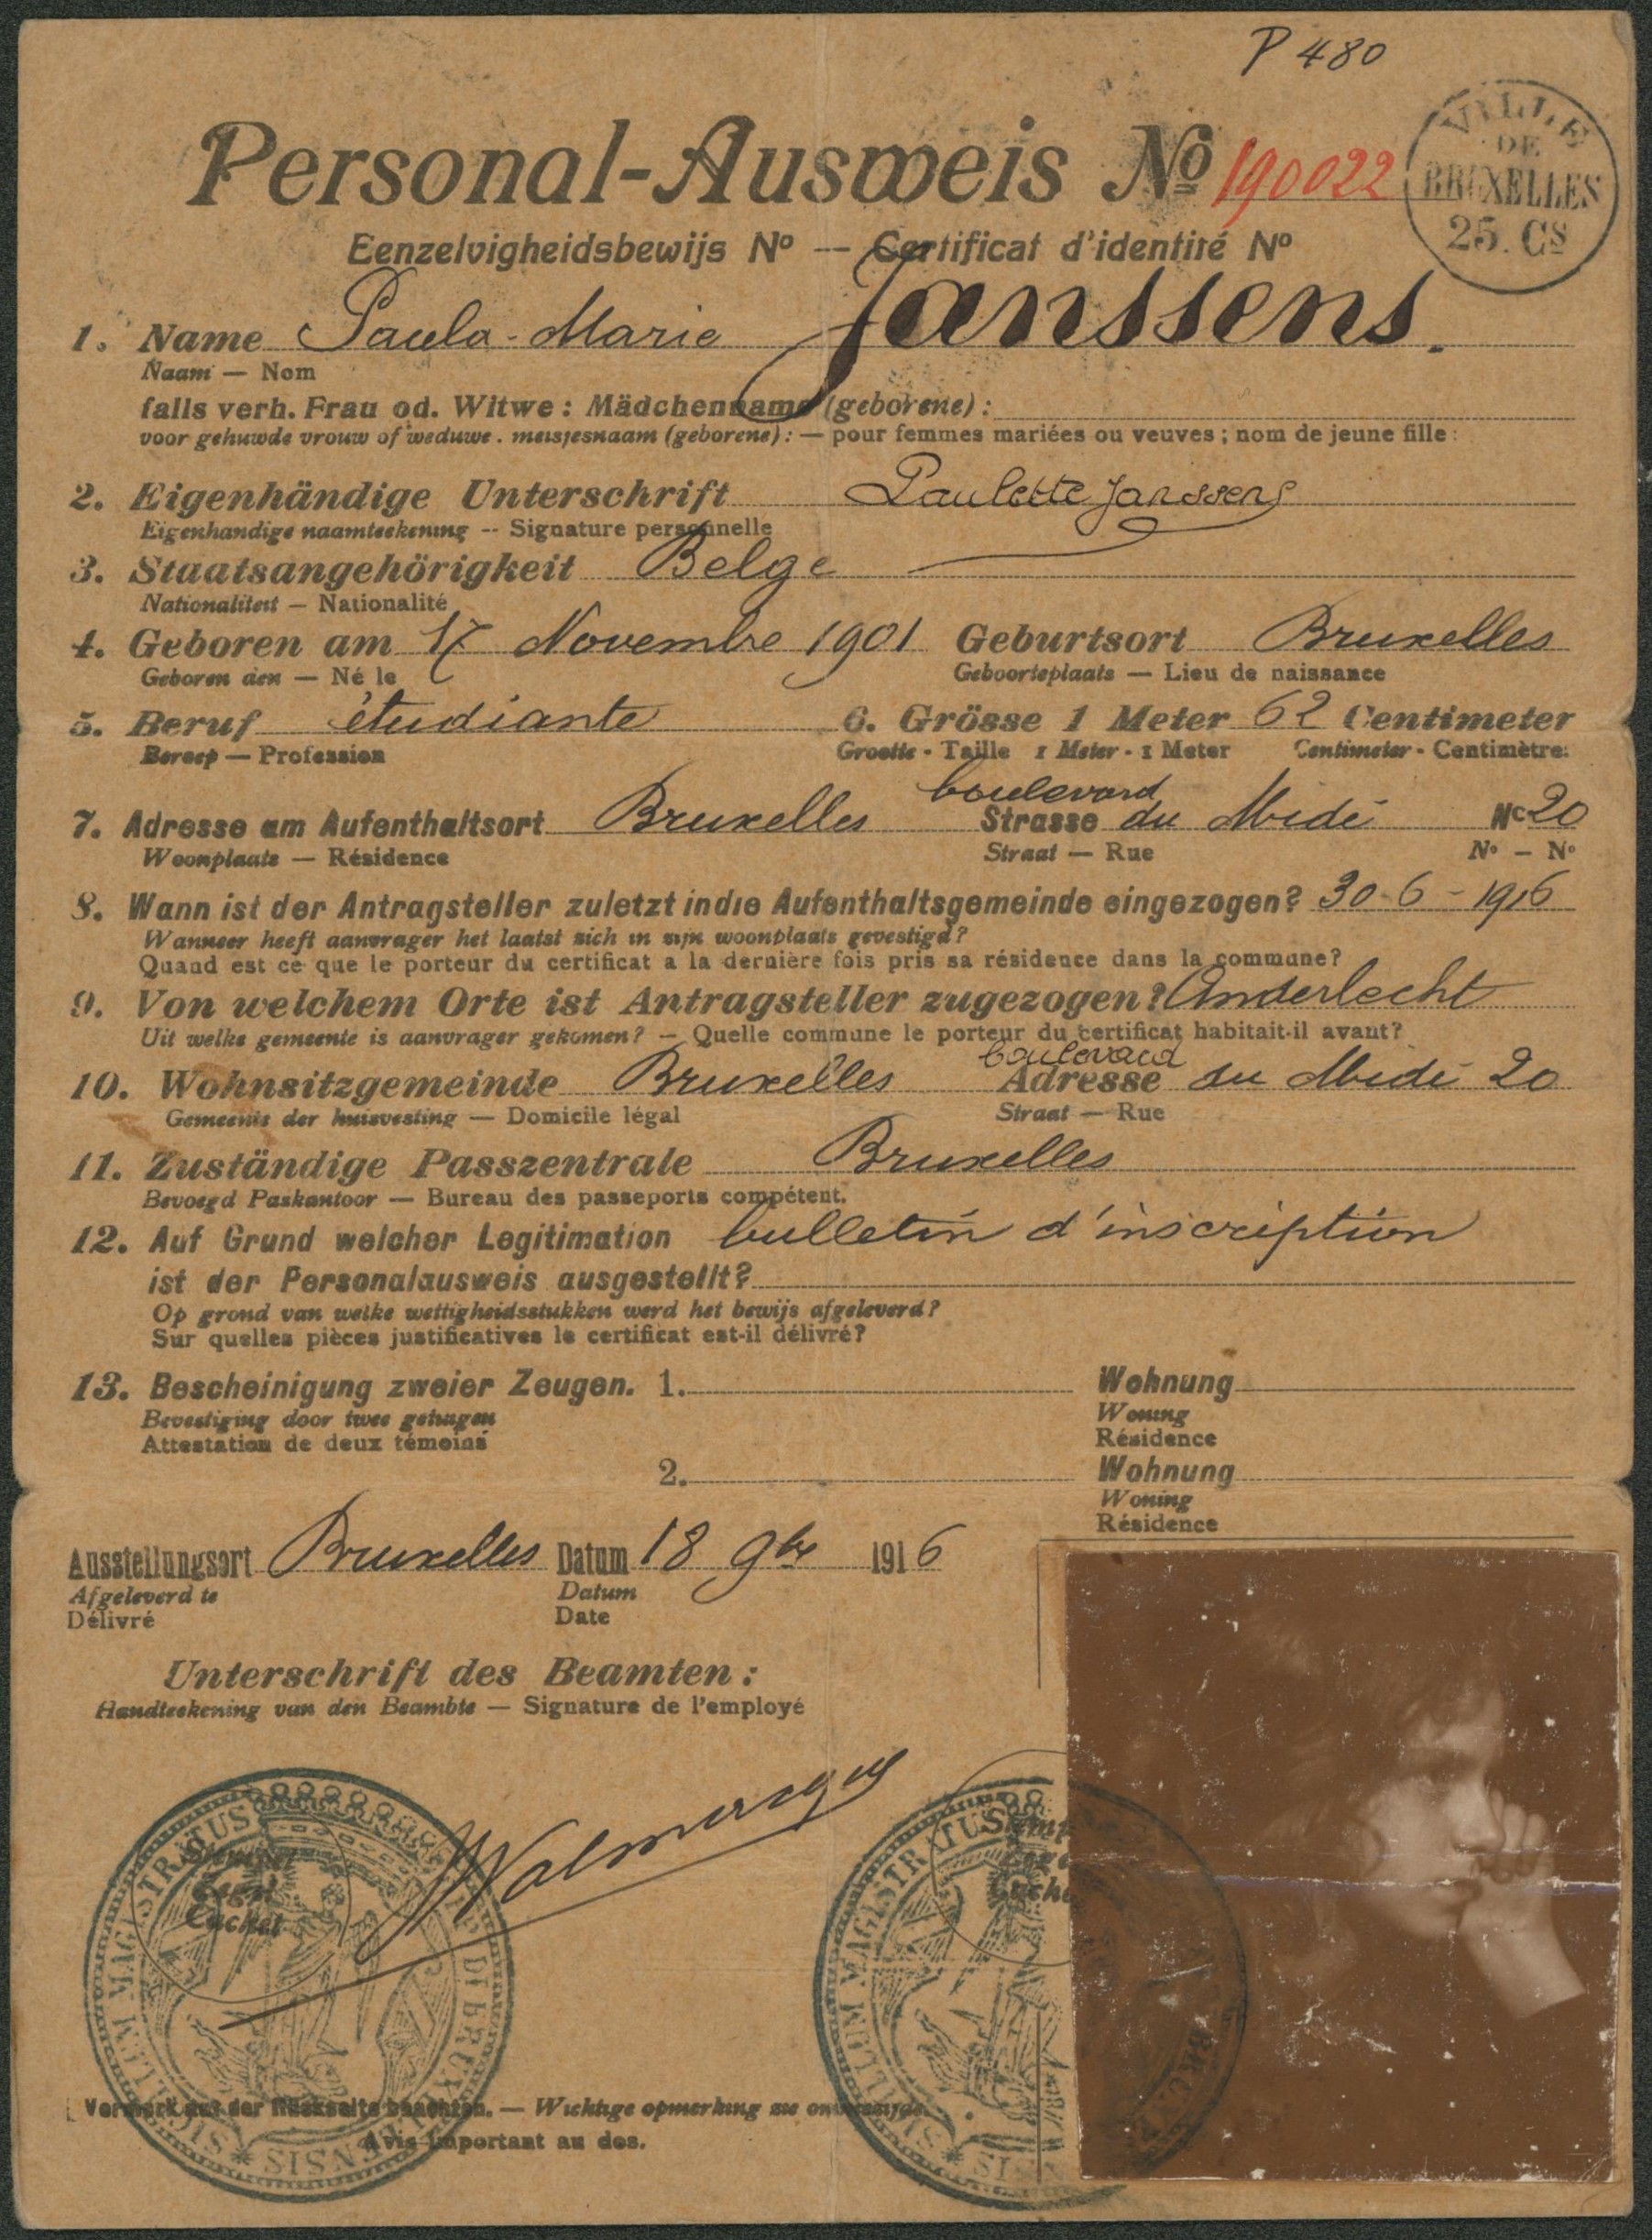 P 480
Personal-Ausweis Nº 190022
VILLE DE BRUXELLES 25. Cs
Eenzelvigheidsbewijs Nº — Certificat d'identité Nº
1. Name Paula-Marie Janssens.
Naam — Nom
falls verh. Frau od. Witwe: Mädchenname (geborene):
voor gehuwde vrouw of weduwe. meisjesnaam (geborene): — pour femmes mariées ou veuves; nom de jeune fille:
2. Eigenhändige Unterschrift Paulette Janssens
Eigenhandige naamteekening -- Signature personnelle
3. Staatsangehörigkeit Belge
Nationaliteit — Nationalité
4. Geboren am 17 Novembre 1901 Geburtsort Bruxelles
Geboren den — Né le Geboorteplaats — Lieu de naissance
5. Beruf étudiante 6. Grösse 1 Meter 62 Centimeter
Beroep — Profession Grootte - Taille 1 Meter - 1 Meter Centimeter - Centimètre:
boulevard
7. Adresse am Aufenthaltsort Bruxelles Strasse du Midi Nº 20
Woonplaats — Résidence Straat — Rue Nº — Nº
8. Wann ist der Antragsteller zuletzt in die Aufenthaltsgemeinde eingezogen? 30-6-1916
Wanneer heeft aanvrager het laatst zich in zijn woonplaats gevestigd?
Quand est ce que le porteur du certificat a la dernière fois pris sa résidence dans la commune?
9. Von welchem Orte ist Antragsteller zugezogen? Anderlecht
Uit welke gemeente is aanvrager gekomen? — Quelle commune le porteur du certificat habitait-il avant?
boulevard
10. Wohnsitzgemeinde Bruxelles Adresse du Midi 20
Gemeente der huisvesting — Domicile légal Straat — Rue
11. Zuständige Passzentrale Bruxelles
Bevoegd Paskantoor — Bureau des passeports compétent.
12. Auf Grund welcher Legitimation bulletin d'inscription
ist der Personalausweis ausgestellt?
Op grond van welke wettigheidsstukken werd het bewijs afgeleverd?
Sur quelles pièces justificatives le certificat est-il délivré?
13. Bescheinigung zweier Zeugen. 1. Wohnung
Bevestiging door twee getuigen Woning
Attestation de deux témoins Résidence
2. Wohnung
Woning
Résidence
Ausstellungsort Bruxelles Datum 18 9bre 1916
Afgeleverd te Datum
Délivré Date
Unterschrift des Beamten:
Handteekening van den Beambte — Signature de l'employé
Stempel
Zegel
Cachet
SIGILLUM MAGISTRATUS
Vermerk auf der Rückseite beachten. — Wichtige opmerking
Avis important au dos.